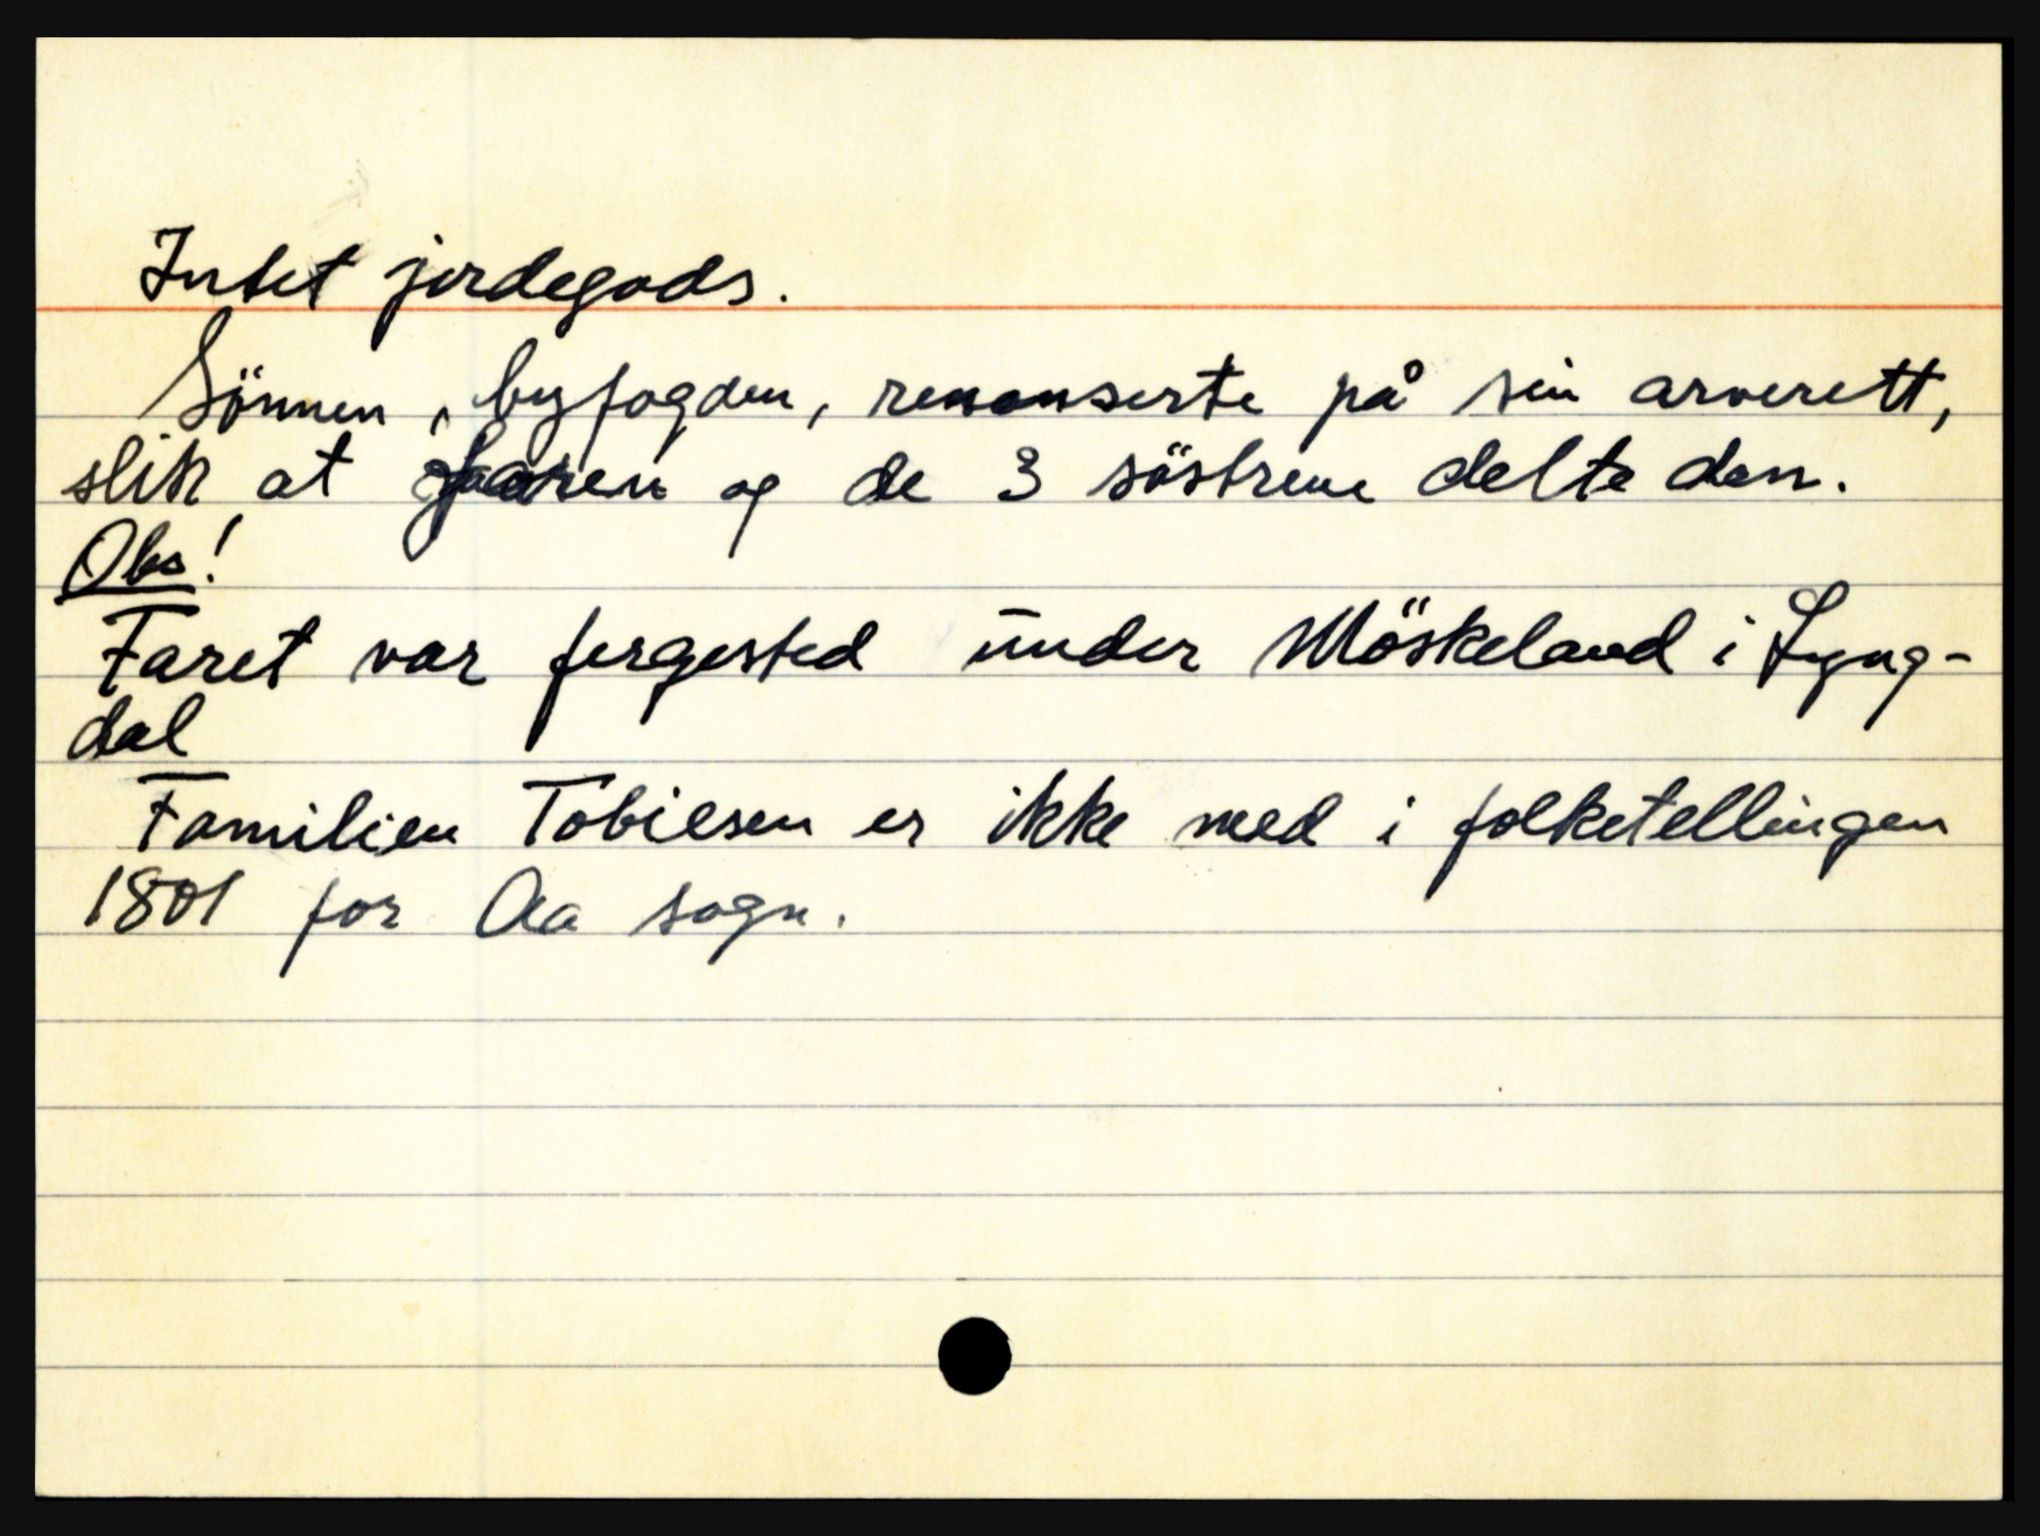 Intet jordegods.
Sönnen, byfogden, renonserte på sin arverett,
slik at faren og de 3 söstrene delte den.
Obs!
Faret var fergested under Möskeland i Lyng-
dal
Familien Tobiesen er ikke med i folketellingen
1801 for Aa sogn.